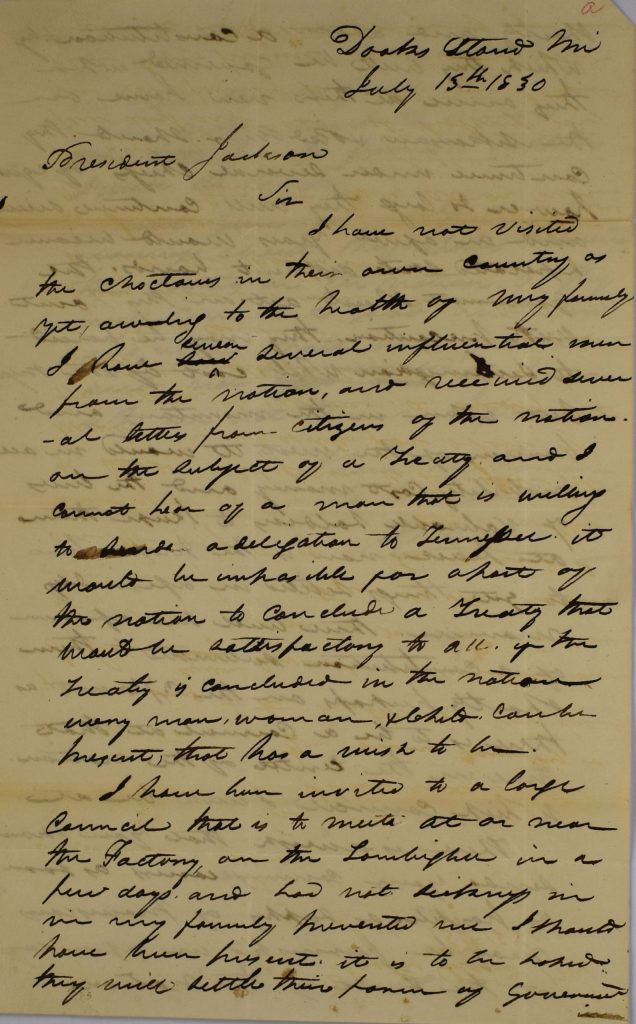 a
Doaks Stand Mi
July 15th 1830
President Jackson
Sir
I have not visited
the choctaws in their own country as
yet, owing to the health of my family
I have seven several influential men
from the nation, and received sever
-al letters from citizens of the nation.
on the subject of a Treaty and I
cannot hear of a man that is willing
to a delegation to Tennessee. it
would be impossible for a part of
the nation to conclude a Treaty that
would be satisfactory to all. if the
Treaty is concluded in the nation
every man, woman, & child. can be
present, that has a wish to be.
I have been invited to a large
Council that is to meet at or near
the Factory, on the Tombigbee in a
few days. and had not sickness in
in my family prevented me I should
have been present. it is to be hoped
they will settle their form of Government